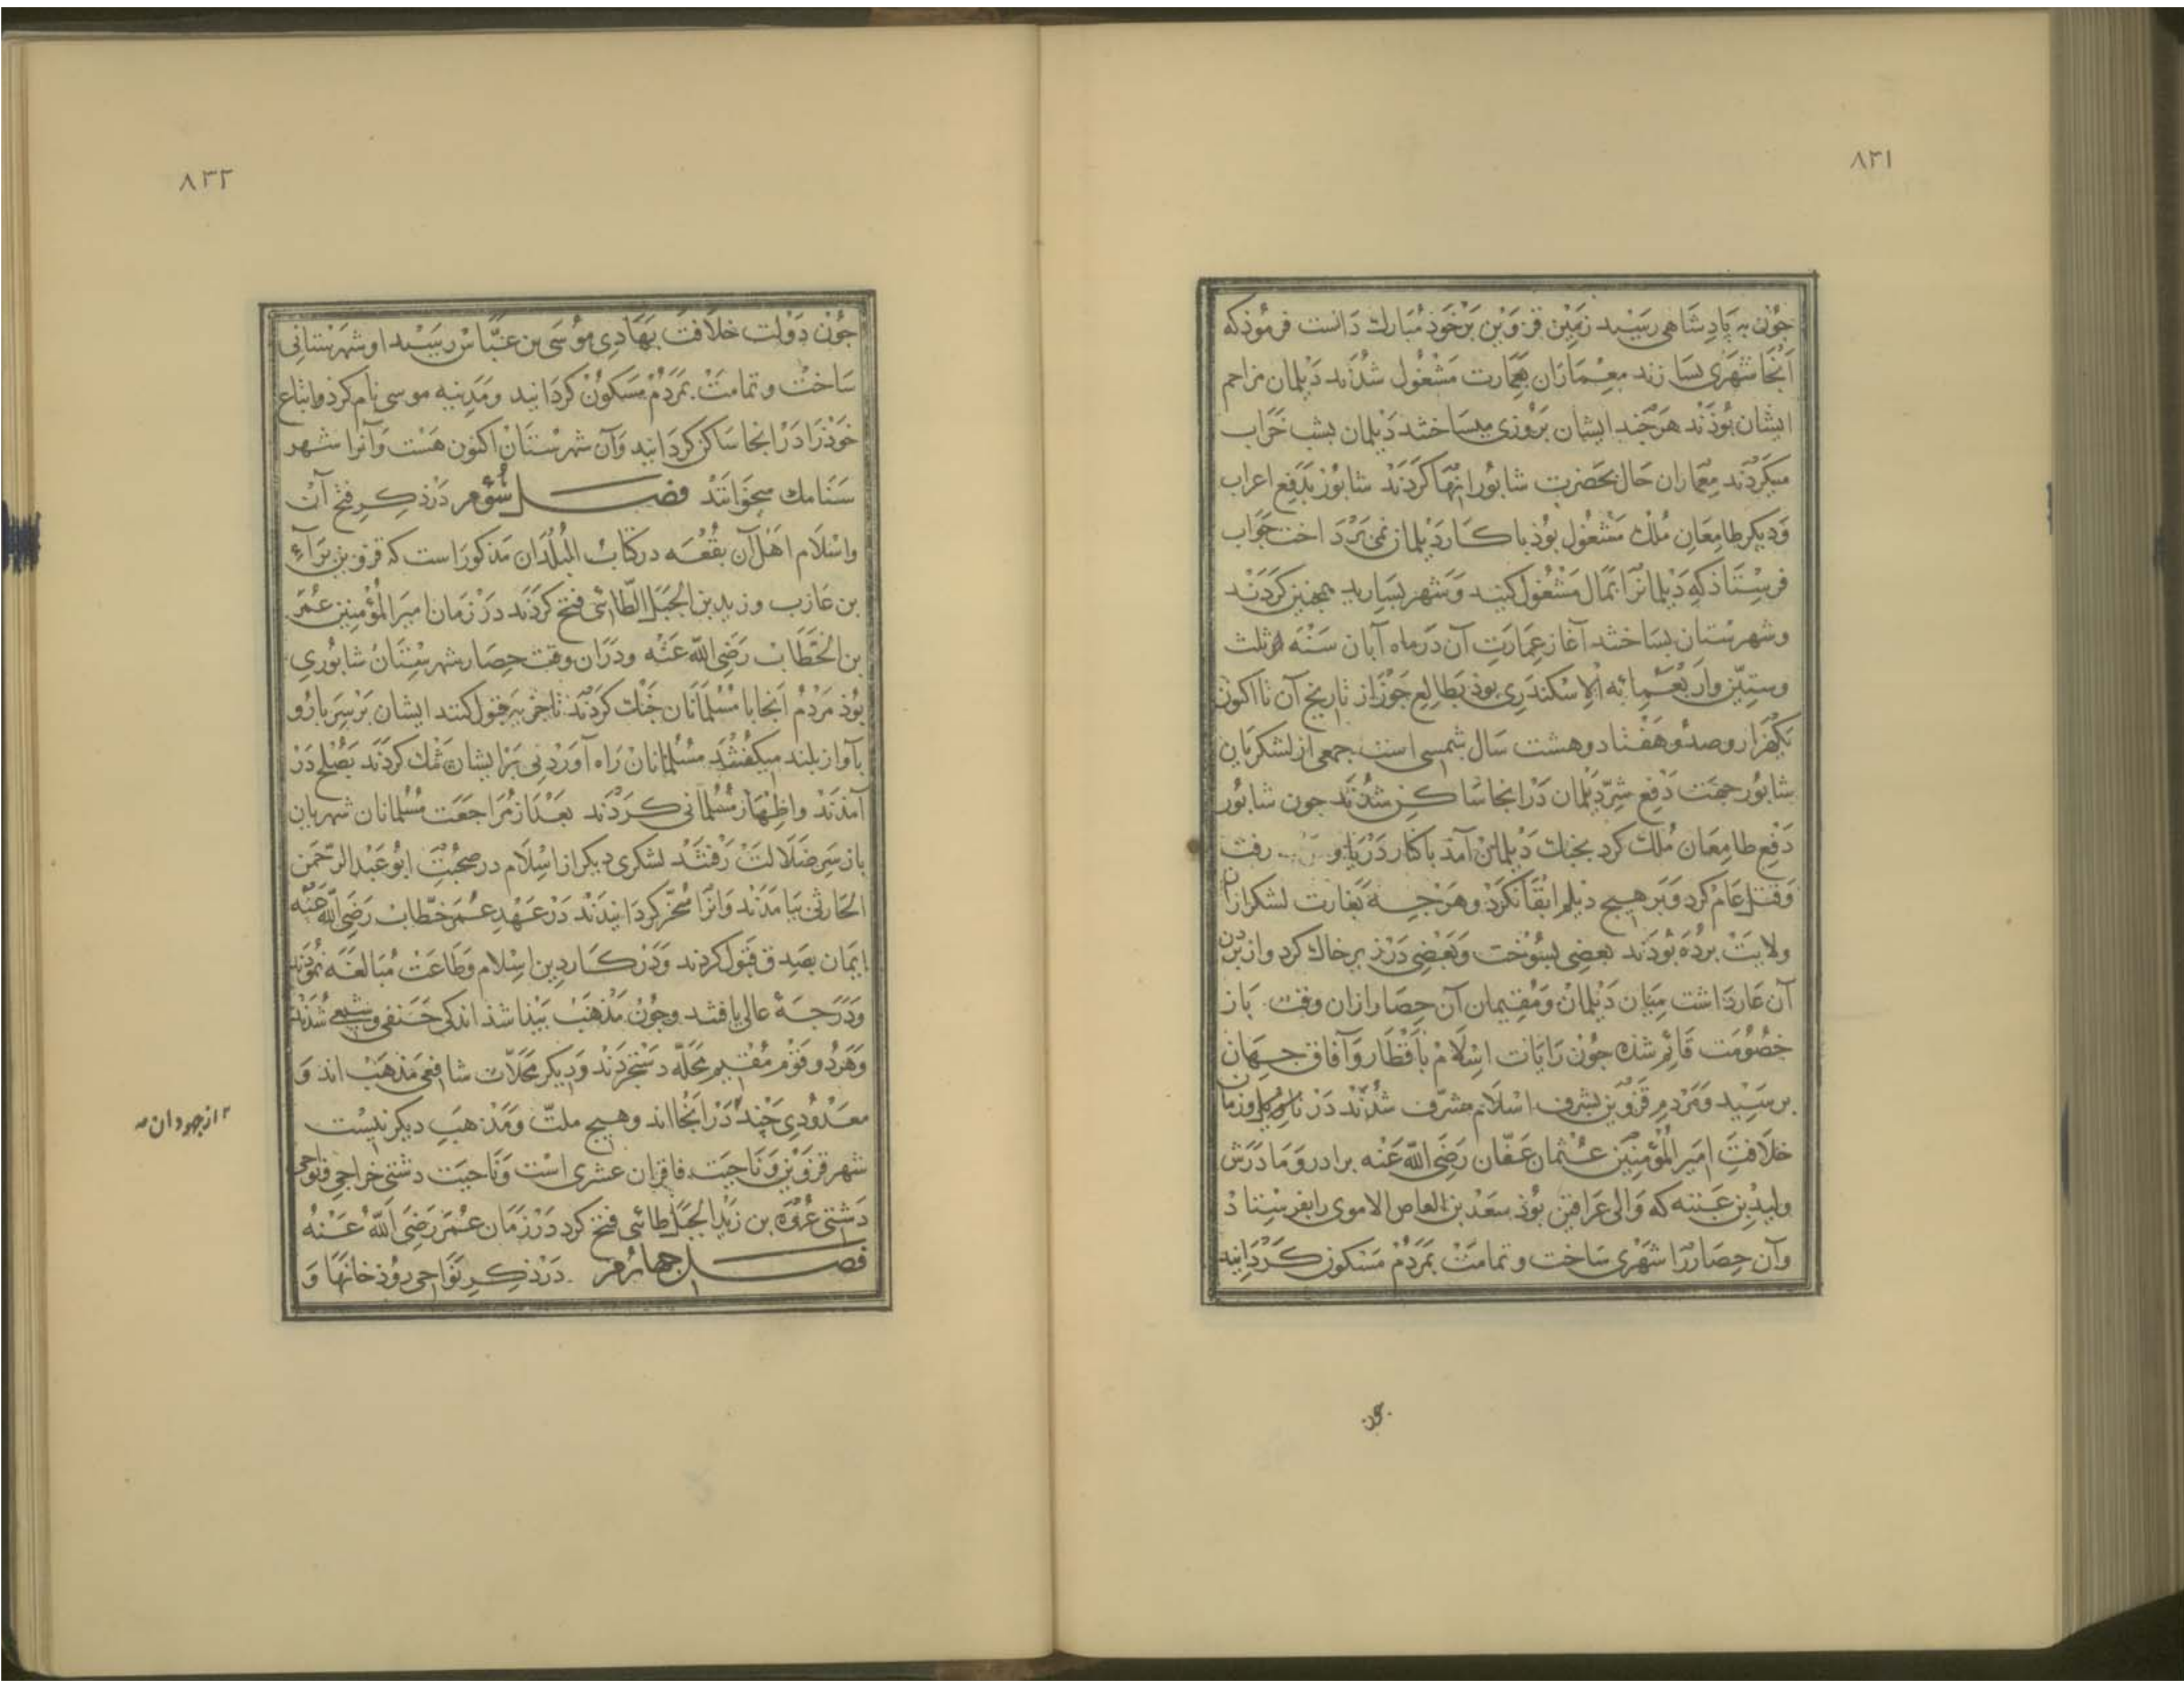 ٨٣١
جون به پادشاهی رسید زمین قزوین برخوذ مبارك دانست فرموذ که
آنجا شهری بسازند معماران بعمارت مشغول شدند دیلمان مزاحم
ایشان بوذند هرجند ایشان بروزی میساختند دیلمان بشب خراب
میکردند معماران حال بحضرت شابور انها کردند شابور بدفع اعراب
ودیکر طامعان ملك مشغول بوذ با کار دیلمان نمی برداخت جواب
فرستاذ که دیلمانرا بمال مشغول کنید وشهر بسازید همجنین کردند
وشهرستان بساختند آغاز عمارت آن در ماه آبان سنه ثلث
وستین واربعمائه الاسکندری بوذ بطالع جوزا از تاریخ آن تا اکنون
یکهزار وصد وهفتاد وهشت سال شمسی است جمعی از لشکریان
شابور جهت دفع شر دیلمان در انجا ساکن شدند جون شابور
دفع طامعان ملك کرد بجنك دیلمان آمد با کنار دریا رفت
وقتل عام کرد وبر هیج دیلم ابقا نکرد وهرجه بغارت لشکر ازان
ولایت برده بوذند بعضی بسوخت وبعضی در زیر خاك کرد واز بردن
آن عار داشت میان دیلمان ومقیمان آن حصار ازان وقت باز
خصومت قائم شذه جون رایات اسلام باقطار وآفاق جهان
برسید ومردم قزوین بشرف اسلام مشرف شدند در زمان
خلافت امیر المؤمنین عثمان عفان رضی الله عنه برادر ومادرش
ولید بن عتبه که والی عراقین بوذ سعد بن العاص الاموی را بفرستاذ
وآن حصار را شهری ساخت وتمامت بمردم مسکون کردانید
جون
٨٣٢
جون دولت خلافت بهادی موسی بن عباس رسید او شهرستانی
ساخت وتمامت بمردم مسکون کردانید ومدینه موسی نام کرد واتباع
خوذ را در انجا ساکن کردانید وآن شهرستان اکنون هست وآنرا شهر
ستامك میخوانند فصل سوم در ذکر فتح آن
واسلام اهل آن بقعه در کتاب البلدان مذکور است که قزوین براء
بن عازب وزید بن الجبل الطائی فتح کردند در زمان امیر المؤمنین عمر
بن الخطاب رضی الله عنه ودران وقت حصار شهرستان شابوری
بوذ مردم آنجا با مسلمانان جنك کردند تا جزیه قبول کنند ایشان بر سر بارو
بآواز بلند میکفتند مسلمانان راه آوردنی بر ایشان تمك کردند بصلح در
آمذند واظهار مسلمانی کردند بعد از مراجعت مسلمانان شهریان
باز سر ضلالت رفتند لشکری دیکر از اسلام در صحبت ابو عبد الرحمن
الحارثی بیامدند وانرا مسخر کردانیدند در عهد عمر خطاب رضی الله عنه
ایمان بصدق قبول کردند ودر کار دین اسلام وطاعت مبالغه نموذند
ودرجه عالی یافتند وجون مذهب بیذا شذ اندکی حنفی وشیعی شدند
وهر دو قوم مقیم محله دستجردند ودیکر محلات شافعی مذهب اند و
معدودی جند در انجا اند وهیج ملت ومذهب دیکر نیست
از جهودان
شهر قزوین وناحیت فاقزان عشری است وناحیت دشتی خراجی ونواحی
دشتی عروه بن زید الجبل طائی فتح کرد در زمان عمر رضی الله عنه
فصل جهارم در ذکر نواحی روذ خانها و